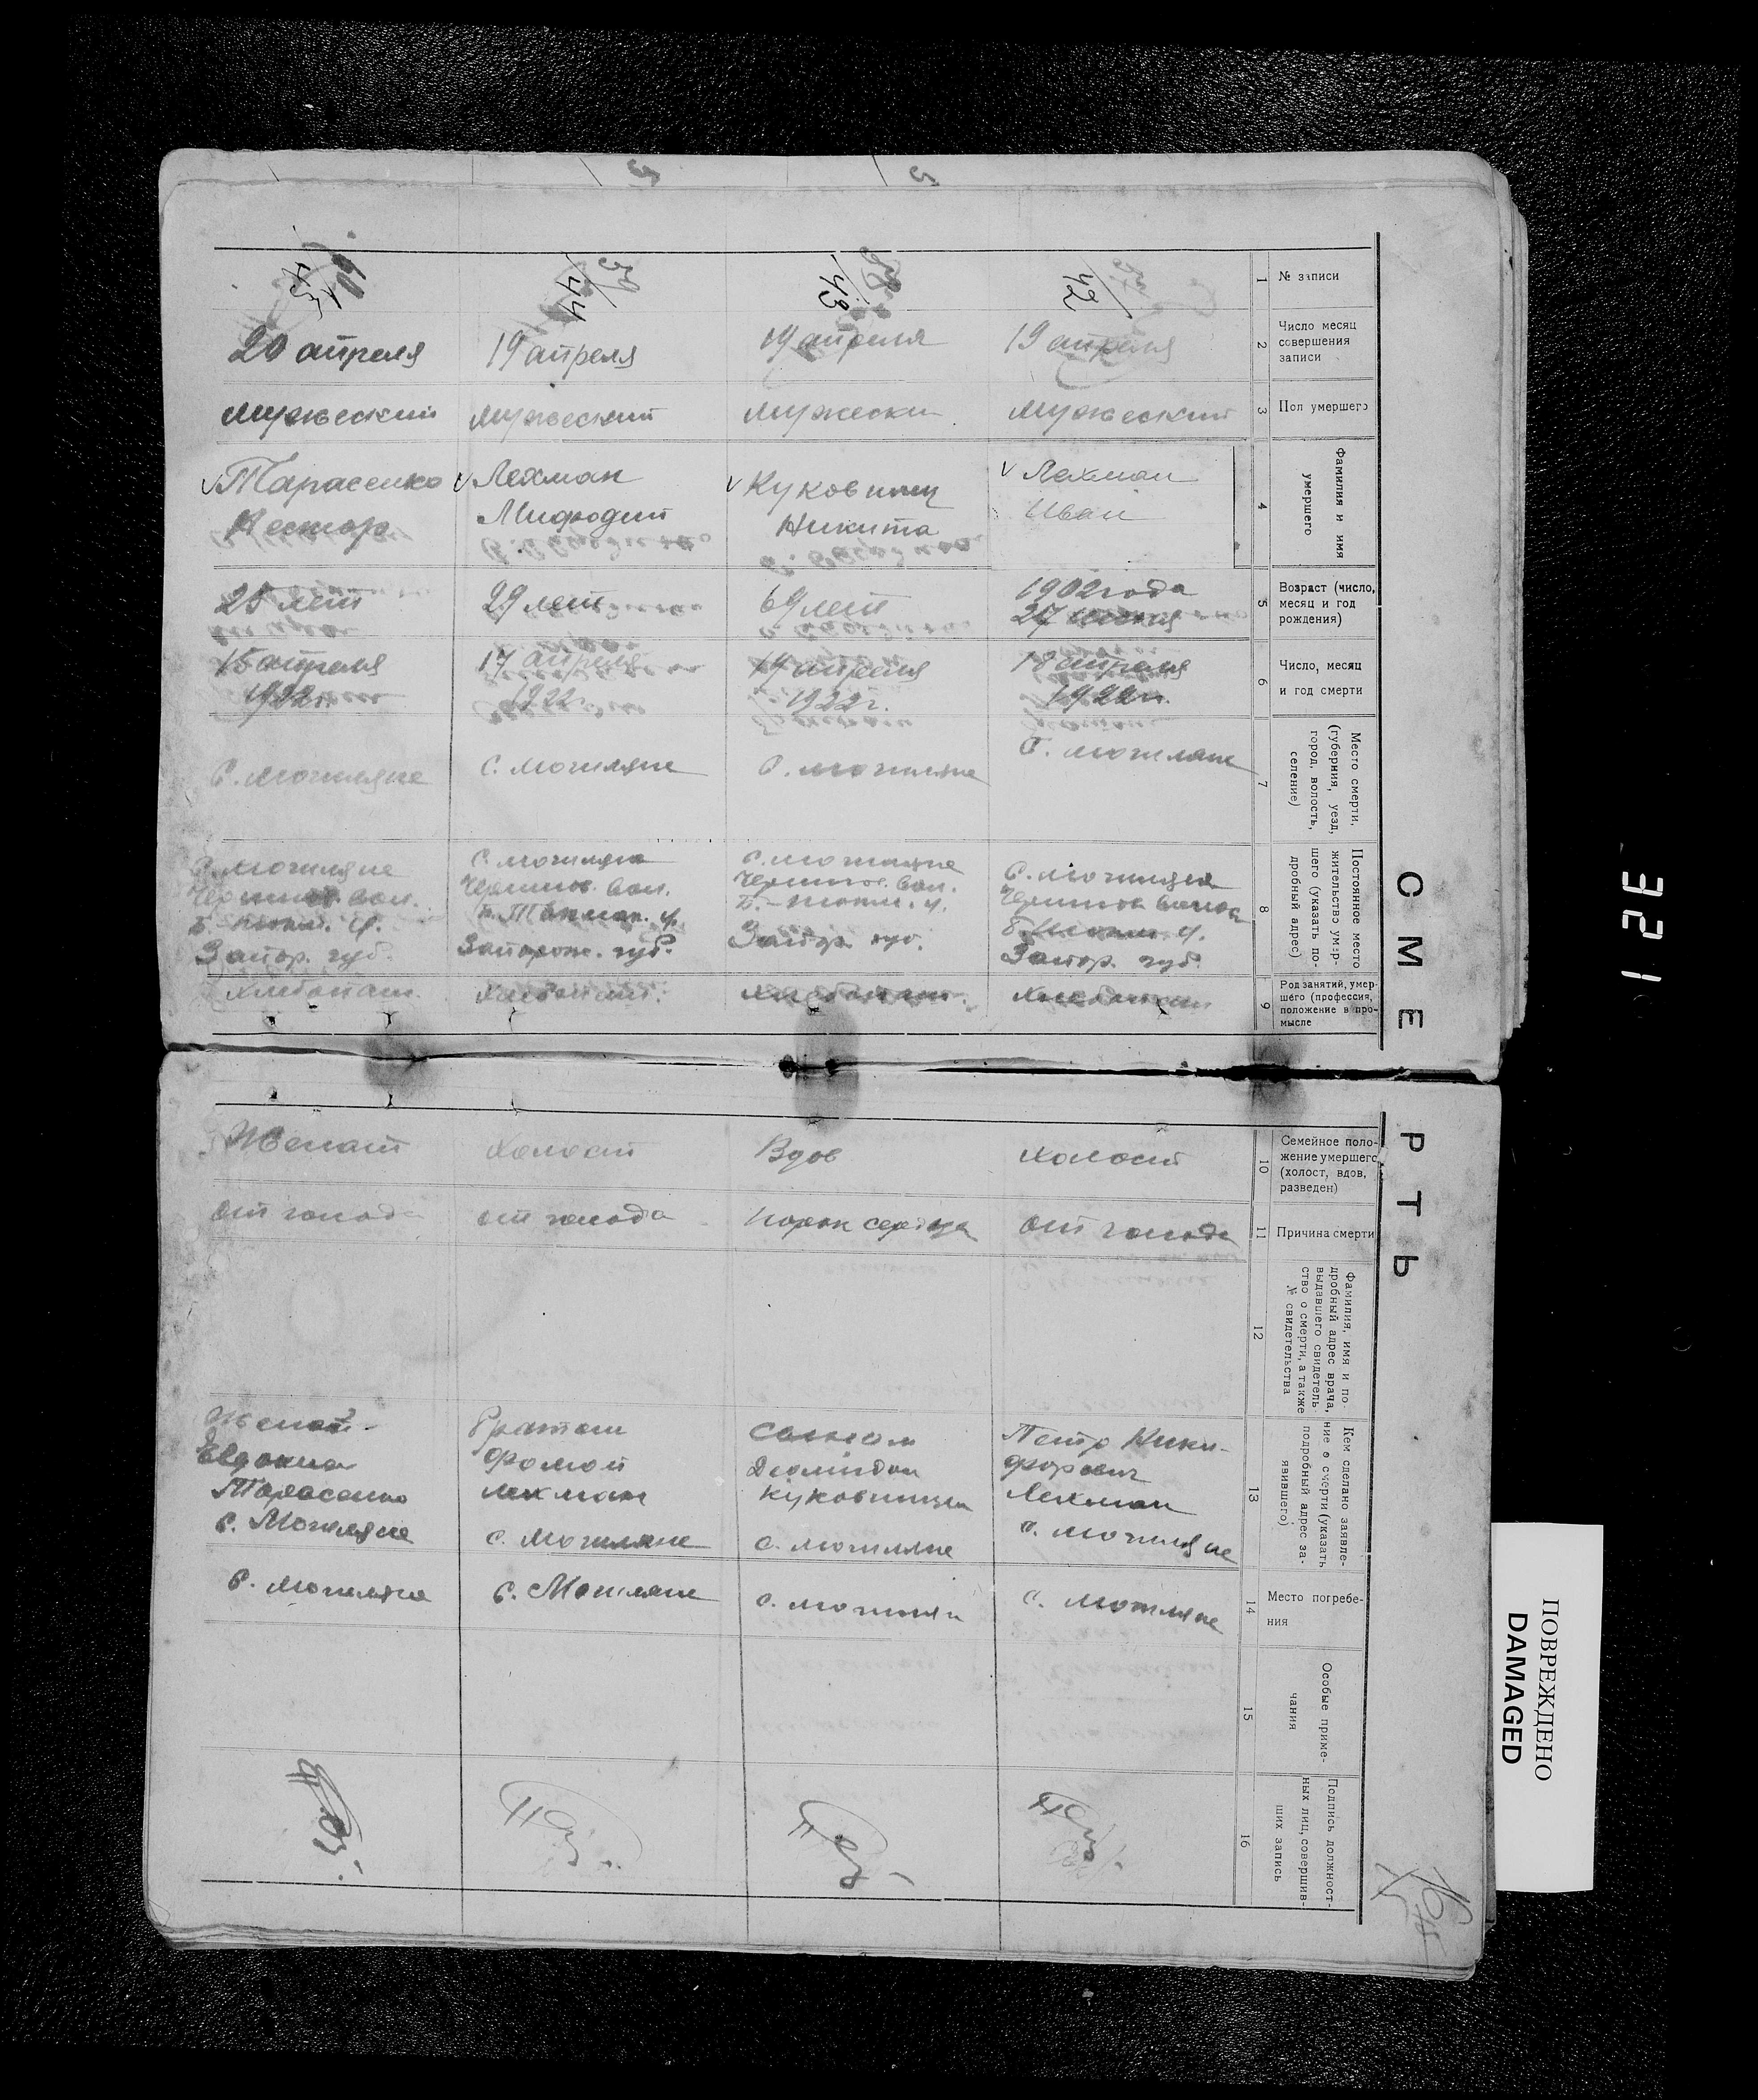 СМЕРТЬ
1
№ записи
2
Число месяц
совершения
записи
3
Пол умершего
4
Фамилия и имя
умершего
5
Возраст (число,
месяц и год
рождения)
6
Число, месяц
и год смерти
7
Место смерти,
(губерния, уезд,
город, волость,
селение)
8
Постоянное место
жительство умер-
шего (указать по-
дробный адрес)
9
Род занятий, умер-
шего (профессия,
положение в про-
мысле
10
Семейное поло-
жение умершего
(холост, вдов,
разведен)
11
Причина смерти
12
Фамилия, имя и по-
дробный адрес врача,
выдавшего свидетель-
ство о смерти, а также
№ свидетельства
13
Кем сделано заявле-
ние о смерти (указать
подробный адрес за-
явившего)
14
Место погребе-
ния
15
Особые приме-
чания
16
Подпись должност-
ных лиц, совершив-
ших запись
42
19 апреля
мужеский
Лехман
Иван
1902 года
18 апреля
1922 г.
С. Могиляне
С. Могиляне
Б. Токм. у.
Запор. губ.
Хлебопаш.
Холост
от голода
Петр Ники-
форович
Лехман
С. Могиляне
С. Могиляне
43
19 апреля
мужески
Никита
69 лет
1922 г.
С. Могиляне
С. Могиляне
Б.-Токм. у.
Запор. губ.
Хлебопаш.
Вдов
порок сердца
С. Могиляне
С. Могиляне
44
19 апреля
мужеский
Лехман
Мифодий
29 лет
17 апреля
1922
С. Могиляне
С. Могиляне
Б. Токмак. у.
Запорож. губ.
Хлебопаш.
Холост
от голода
Братом
Фомой
Лехман
С. Могиляне
С. Могиляне
45
20 апреля
мужеский
Тарасенко
Нестор
лет
15 апреля
1922 г.
С. Могиляне
С. Могиляне
Б. Токм. у.
Запор. губ.
Хлебопаш.
Женат
от голода
Женой
Евдокия
Тарасенко
С. Могиляне
С. Могиляне
321
ПОВРЕЖДЕНО
DAMAGED